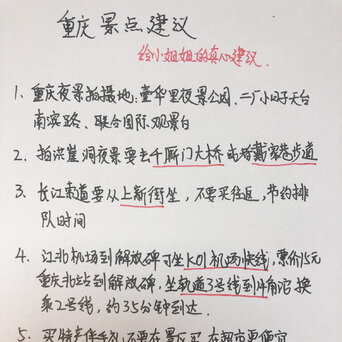 重庆景点建议
给小姐姐的真心建议
1、重庆夜景拍摄地：童华里夜景公园、二厂小日子天台
南滨路、联合国际观景台
2、拍洪崖洞夜景要去千厮门大桥或者戴家巷步道
3、长江索道要从上新街坐，不要买往返，节约排
队时间
4、江北机场到解放碑可坐K01机场快线，票价15元
重庆北站到解放碑，坐轨道3号线到牛角沱换
乘2号线，约35分钟到达
5、买特产伴手礼不要在景区买，在超市更便宜